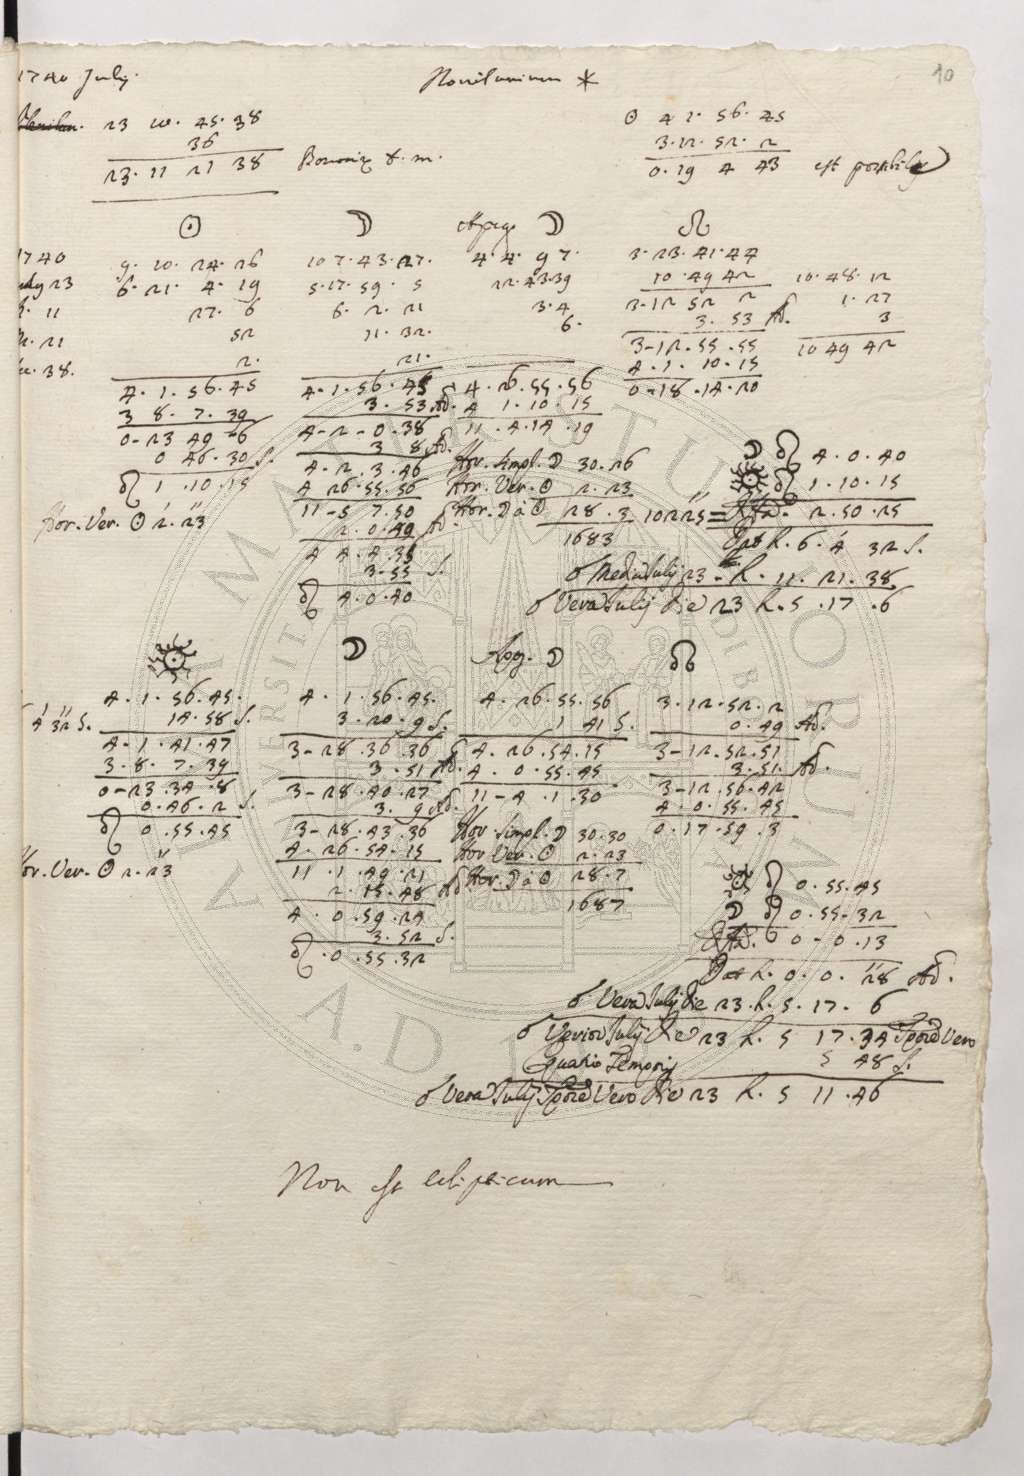 1740 July. Novilunium * 10
23 10. 45. 38 ☉ 4 1. 56. 45
36 3. 12. 52. 2
23. 11 21 38 Bononiæ t. m. 0. 19 4 43 est possibile
☉ ☽ Apog. ☽ ☊
1740 9. 10. 24. 26 10 7. 43. 27. 4. 4. 9 7. 3. 23. 41. 44
July 23 6. 21. 4. 19 5. 17. 59. 5 22. 43. 39 10. 49 42 10. 48. 12
h. 11 27. 6 6. 2. 21 3. 4 3-12 52 2 1. 27
m. 21 52 11. 32. 6. 3. 53 Ad. 3
38. 2. 21. 3-12. 55. 55 10 49 42
4. 1. 56. 45 4. 1. 56. 45 4. 26. 55. 56 4. 1. 10. 15
3 8. 7. 39 3. 53 Ad. 4 1. 10. 15 0-18. 14. 20
0-23 49 6 4-2-0. 38 11. 4. 14. 19
0 46. 30 S. 3 8 Ad.
♌ 1. 10. 15 4. 2. 3. 46 Hor. simpl. ☽ 30. 26 ☽ ♌ 4. 0. 40
4 26. 55. 56 Hor. Ver. ☉ 2. 23 ☉ ♌ 1. 10. 15
Hor. Ver. ☉ 2. 23 11-5 7. 50 Hor. ☽ à ☉ 28. 3 10225 = 2. 50. 25
2. 0. 49 Ad. 1683 Dat h. 6. 4 32 S.
4 4. 4. 35 ☌ Media Julij 23. h. 11. 21. 38
3-55 S. ☌ Vera Julij die 23 h. 5. 17. 6
♌ 4. 0. 40
☉ ☽ Apog. ☽ ☊
4. 1. 56. 45. 4. 1. 56. 45. 4. 26. 55. 56 3-12. 52. 2
4 32 S. 14. 58 S. 3. 20. 9 S. 1 41 S. 0. 49 Ad.
4-1. 41. 47 3-28. 36 36 4. 26. 54. 15 3-12. 52. 51
3. 8. 7. 39 3. 51 Ad. 4. 0. 55. 45 3. 51. Ad.
0-23. 34. 8 3-28. 40. 27 11-4. 1. 30 3-12. 56. 42
0. 46. 2 S. 3. 9 Ad. 4. 0. 55. 45
♌ 0. 55. 45 3-28. 43. 36 Hor simpl. ☽ 30. 30 0. 17. 59. 3
4. 26. 54. 15 Hor Ver. ☉ 2. 23
Hor. Ver. ☉ 2. 23 11. 1. 49. 21 Hor. ☽ à ☉ 28. 7 ☉ ♌ 0. 55. 45
2. 15. 48 Ad 1687 ☽ ♌ 0. 55-32
4. 0. 59. 24 0-0. 13
3. 52 S. Dat h. 0. 0. 28 Ad.
♌. 0. 55. 32
☌ Vera Julij die 23. h. 5. 17. 6
☌ Verior Julij die 23 h. 5 17. 34 Tpore Vero
Equatio Temporis 5 48 S.
☌ Vera Julij Tpore Vero die 23 h. 5 11. 46
Non est eclipticum